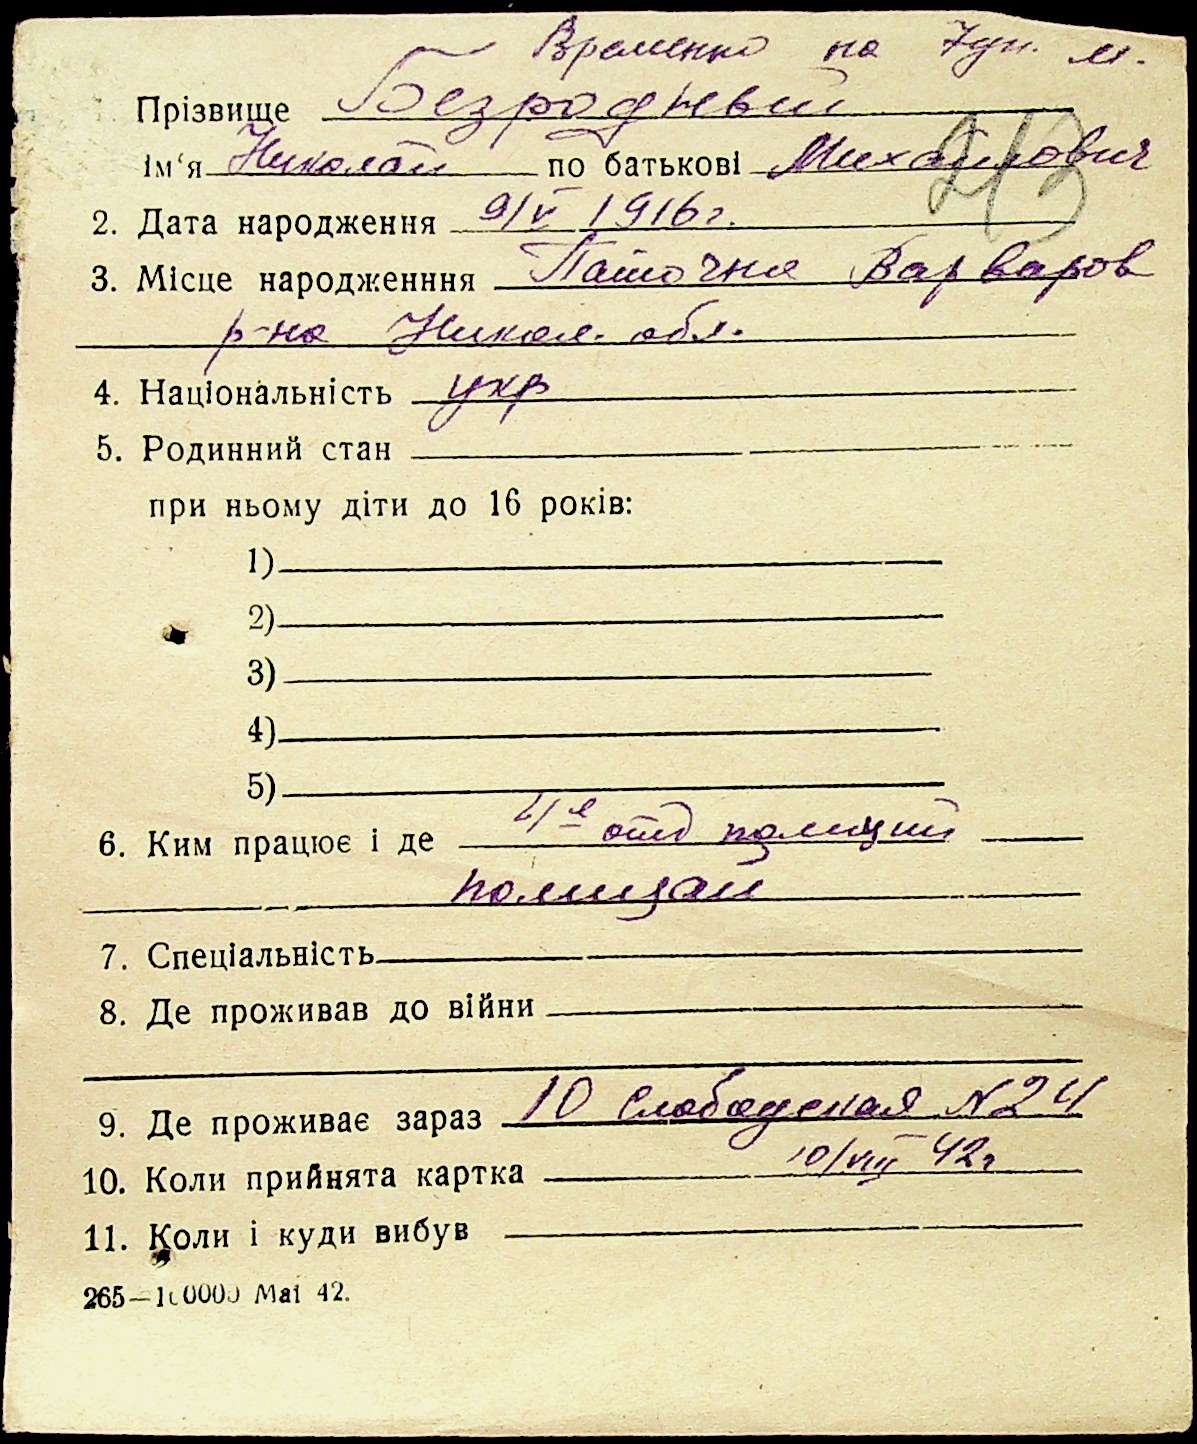 Временно на
Прізвище Безродный
213
ім'я Николай по батькові Михайлович
2. Дата народження 9/V 1916 г.
3. Місце народженння Варваров
р-на Никол. обл.
4. Національність укр
5. Родинний стан
при ньому діти до 16 років:
1)
2)
3)
4)
5)
6. Ким працює і де 4я отд полиции
полицай
7. Спеціальність
8. Де проживав до війни
9. Де проживає зараз 10 Слободская N 24
10. Коли прийнята картка 10/VIII 42 г
11. Коли і куди вибув
265—100000 Маі 42.